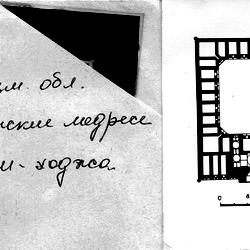 зм. обл.
нские медресе
м-ходжа.
0